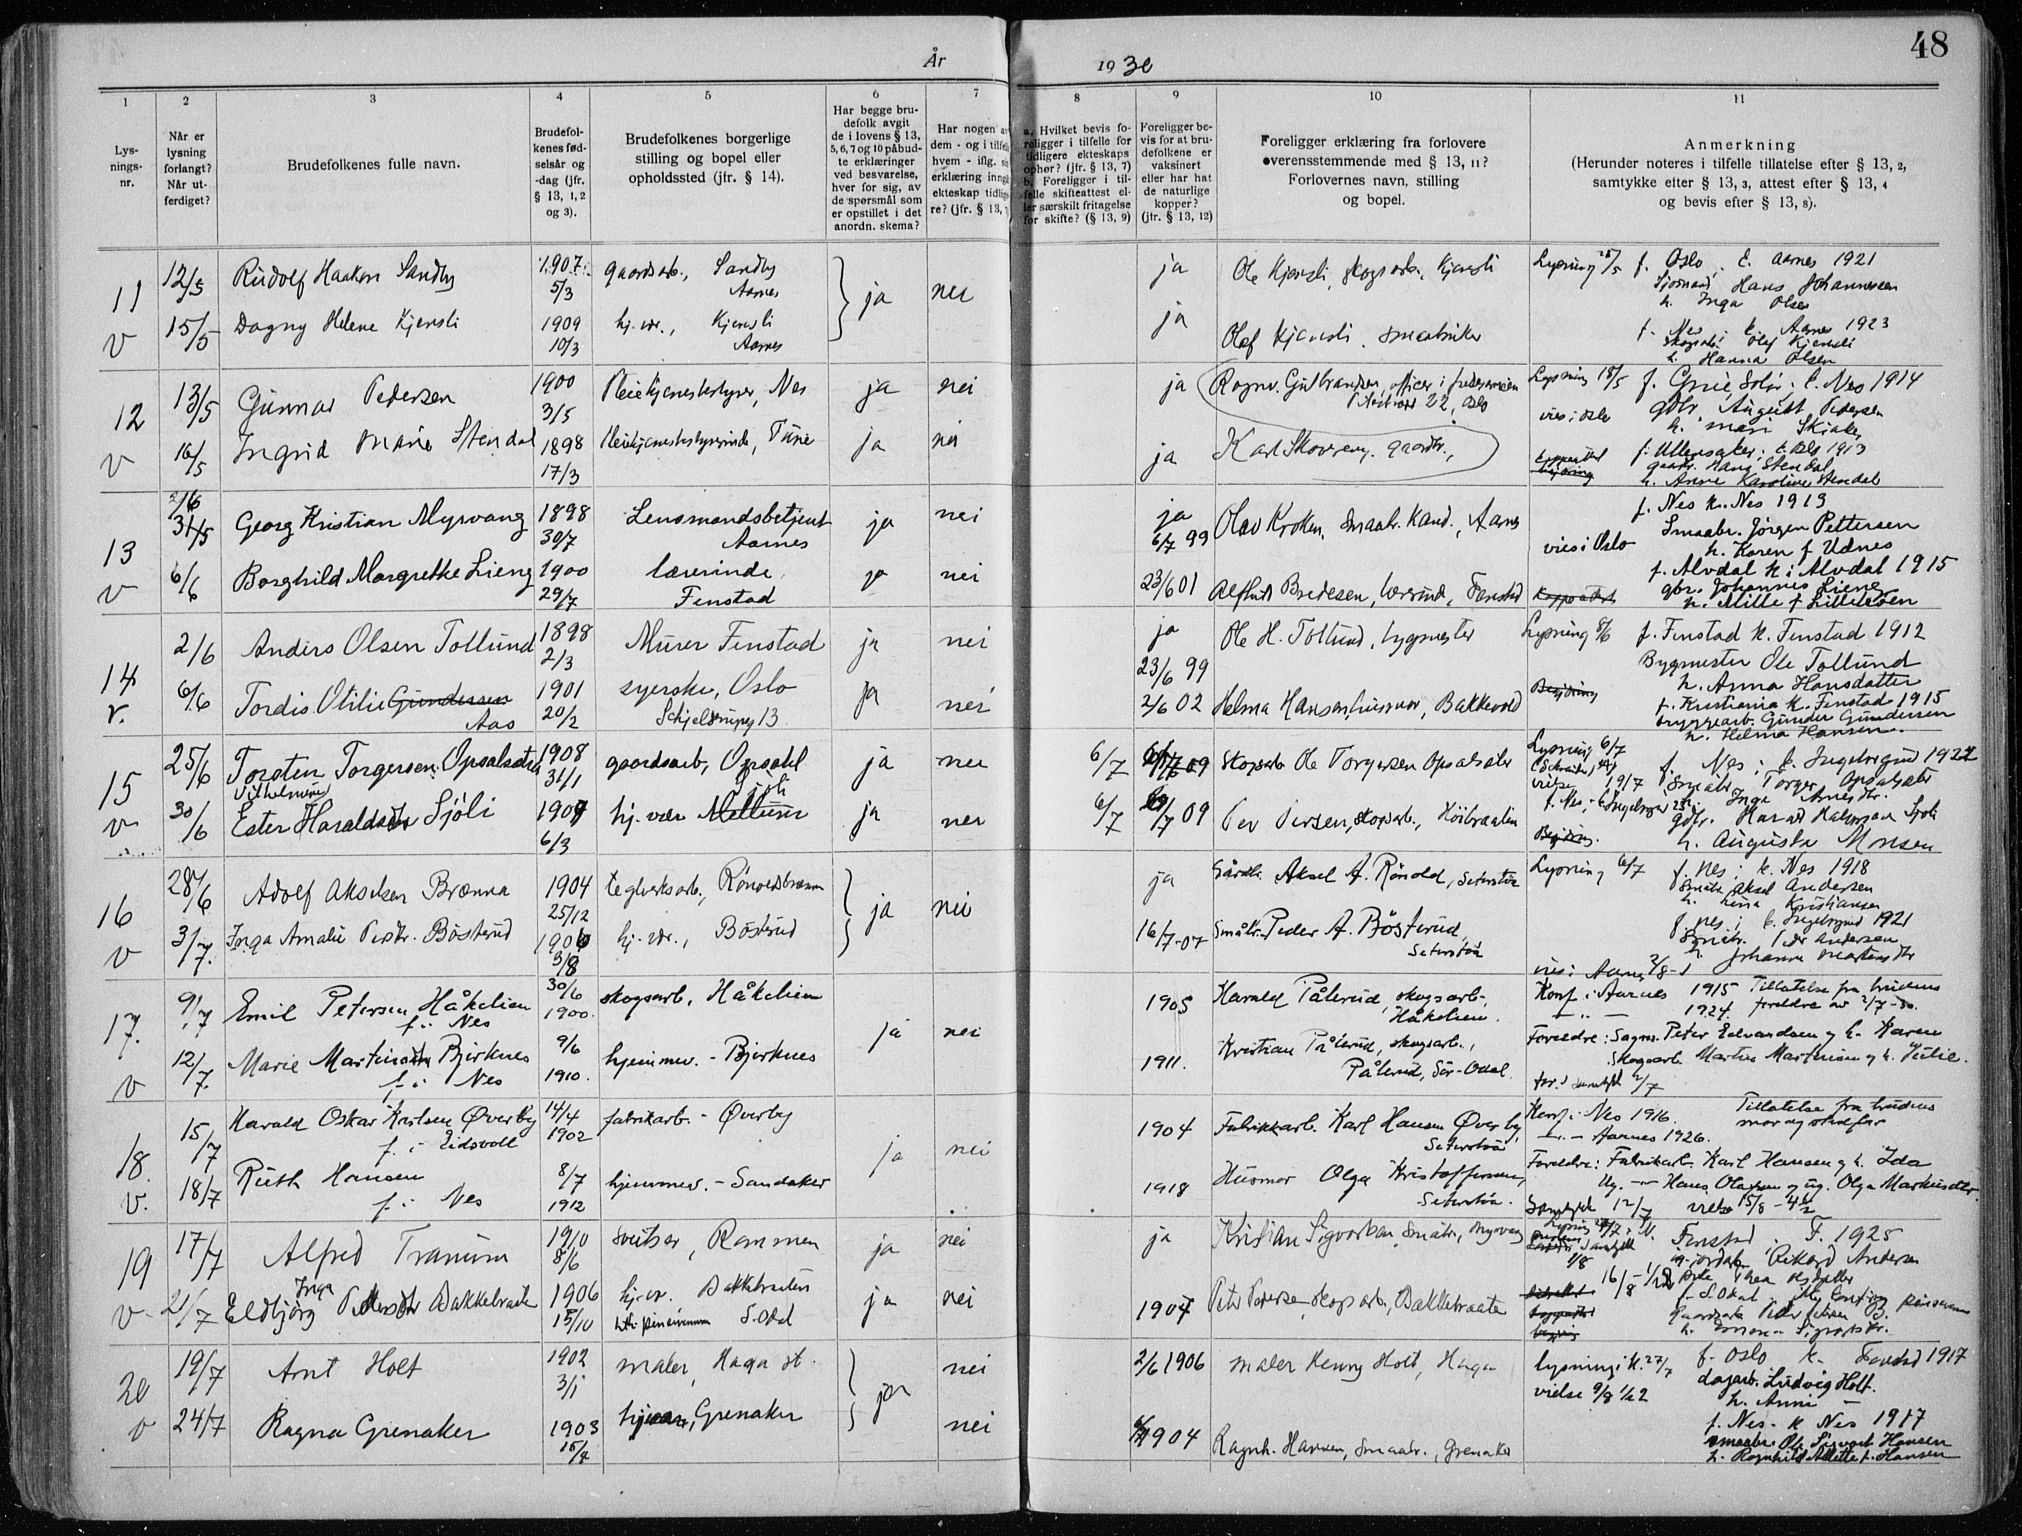 48
År 1930
1
Lys-
nings-
nr.
2
Når er
lysning
forlangt?
Når ut-
ferdiget?
3
Brudefolkenes fulle navn.
4
Brudefol-
kenes fød-
selsår og
-dag (jfr.
§ 13, 1, 2
og 3).
5
Brudefolkenes borgerlige
stilling og bopel eller
opholdssted (jfr. § 14).
6
Har begge bru-
defolk avgit
de i lovens § 13,
5, 6, 7 og 10 påbud-
te erklæringer
ved besvarelse,
hver for sig, av
de spørsmål som
er opstillet i det
anordn. skema?
7
Har nogen av
dem - og i tilfelle
hvem - iflg. sin
erklæring inngått
ekteskap tidlige-
re? (jfr. § 13,
8
a. Hvilket bevis fo-
religger i tilfelle for
tidligere ekteskaps
ophør? (jfr. § 13, 7)
b. Foreligger i til-
felle skifteattest el-
ler særskilt fritagelse
for skifte? (§ 13, 9)
9
Foreligger be-
vis for at bru-
defolkene er
vaksinert
eller har hat
de naturlige
kopper?
(jfr. § 13, 12)
10
Foreligger erklæring fra forlovere
overensstemmende med § 13, 11?
Forlovernes navn, stilling
og bopel.
11
Anmerkning
(Herunder noteres i tilfelle tillatelse efter § 13, 2,
samtykke efter § 13, 3, attest efter § 13, 4
og bevis efter § 13, 8).
11 12/5 Rudolf Haakon Sandby 1907 5/3 gaardsarb., Sandby Aarnes ja nei ja Ole Kjensli, skogsarb. Kjensli Lysning 25/5 f. Oslo, k. Aarnes 1921
Sjømand Hans Johannesen
h. Inga Olsen
v 15/5 Dagny Helene Kjensli 1909 10/3 hj. vr., Kjensli Aarnes ja Olaf Kjensli, smaabruker f. Nes, k. Aarnes 1923
Skogsarb. Olaf Kjensli
h. Hanna Olsen
12 13/5 Gunnar Pedersen 1900 3/5 Pleiehjemsbestyrer, Nes ja nei ja Ragnv. Gulbrandsen, officer i frelsesarmeen
22, Oslo Lysning 18/5 f. Grue, Solør; k. Nes 1914
vies i Oslo gbr. August Pedersen
h. Mari Skiaker
v 16/5 Ingrid Marie Stendal 1898 17/3 Pleiehjemsbestyrerinde, Tune ja nei ja Karl Skovreng, gaardbr., f. Ullensaker; k. Oslo 1913
gaardbr. Hans Stendal
h. Anne Karoline Stendal
13 2/6 31/5 Georg Kristian Myrvang 1898 30/7 Lensmandsbetjent Aarnes ja nei ja 6/7 99 Olav Kroken, smaabr. Kand., Aarnes f. Nes k. Nes 1913
Smaabr. Jørgen Pettersen
vies i Oslo h. Karen f Udnes
v 6/6 Borghild Margrethe Lieng 1900 29/7 lærerinde, Fenstad ja nei 23/6 01 Alfhild Bredesen, lærerind, Fenstad f. Alvdal k i Alvdal 1915
gbr. Johannes Lieng
h. Mille f Lilleløen
14 2/6 Anders Olsen Tollund 1898 2/3 Murer Fenstad ja nei ja 23/6 99 Ole H. Tollund, bygmester Lysning 8/6 f. Fenstad k. Fenstad 1912
Bygmester Ole Tollund
h. Anna Hansdatter
v. 6/6 Tordis Otilie Gundersen Aas 1901 20/2 syerske, Oslo
13 ja nei 2/6 02 Helma Hansen, husmor, Bakkevold f. Kristiania k. Fenstad 1915
bryggearb. Gunder Gundersen
h. Helma Hansen
15 25/6 Torsten Torgersen Opsalsæter 1908 31/1 gaardsarb, Opsahl ja nei 6/7 09 Skogsarb Ole Torgersen Opsalsæter Lysning 6/7
f. Nes; k. Ingelsrud 1922
Småbr. Torger Opsalsæter
vielse 19/7 h. Inga Arnesdtr.
v 30/6 Vilhelmine
Ester Haraldsdtr Sjöli 1909 6/3 hj. vær Mellum Sjöli ja nei 6/7 09 Per Persen, skogsarb., Höibraaten gbr. Harald Halvorsen Sjöli
h. Augusta Monsen
16 28/6 Adolf Akselsen Brænna 1904 25/12 teglverksarb., Rönoldsbrænn ja nei ja Gårdbr. Aksel A. Rönold, Seterstöa Lysning 6/7 f. Nes; k. Nes 1918
Småbr. Aksel Andersen
h. Lina Kristiansen
v 3/7. Inga Amalie Pedtr. Bösterud 1906 3/8 hj. vr., Bösterud 16/7-07 Småbr. Peder A. Bösterud, Seterstöa f. Nes; k. Ingelsrud 1921
Småbr. Peder Andersen
h. Johanne Martinsdtr
17. 9/7 Emil Petersen Håkelien
f. i Nes 30/6 1900. skogsarb, Håkelien ja nei 1905 Harald Pålerud, skogsarb., Håkelien. vies i Aarnes 2/8-
Konf. i Aarnes 1915 Tillatelse fra brudens
— " — 1924. foreldre av 2/7-30.
v 12/7. Marie Martinsdtr Bjerknes
f. i Nes 9/6 1910. hjemmev. - Bjerknes 1911. Kristian Pålerud, skogsarb.,
Pålerud, Sør-Odal. Foreldre: Sagm. Peter Edvardsen og h. Karen
Skogsarb. Martin Martinsen og h. Julie.
18. 15/7 Harald Oskar Karlsen Øverby
f. i Eidsvoll 14/4 1902 fabrikarb. - Øverby ja nei 1904 Fabrikkarb. Karl Hansen Øverby,
Seterstöa Konf. i Nes 1916. Tillatelse fra brudens
— " — Aarnes 1926. mor og stedfar
v. 18/7 Ruth Hansen
f. i Nes 8/7 1912 hjemmev. - Sandaker 1918 Husmor Olga Kristoffersen,
Seterstöa. Foreldre: Fabrikarb. Karl Hansen og h. Ida
Ug. — Hans Olafsen og ug. Olga Markusdtr.
Samtykke 12/7 vielse 15/8 - 4 1/2
19 17/7 Alfred Tranum 1910 8/6 sveitser, Rammen ja nei ja Kristian Sigvartsen, småbr., Myrvang Lysning
Fenstad F. 1925
Rikard Andersen
Thea Olsdatter
v 21/7 Inga
Eldbjörg Pedersdtr Bakkebraaten 1906 15/10 hj. vr. Bakkebraaten
S. Odal ja nei 1907 Peter Pedersen skogsarb., Bakkebraaten 16/8 f. S. Odal
h. Sigvartsdtr.
20 19/7 Arnt Holt 1902 3/1 maler, Haga st. ja nei 2/6 1906 maler Henry Holt, Haga lysning i k. 27/7 f. Oslo k. Fenstad 1917
vielse 9/8 1/2 2 dagarb. Ludvig Holt.
h. Anni —
v 24/7 Ragna Grenaker 1903 15/7 Grenaker nei 1904 Ragnh. Hansen, smaabr., Grenaker f. Nes. k Nes 1917
smaabr. Ole Sigvart Hansen
h. Ragnhild Alette f. Hansen